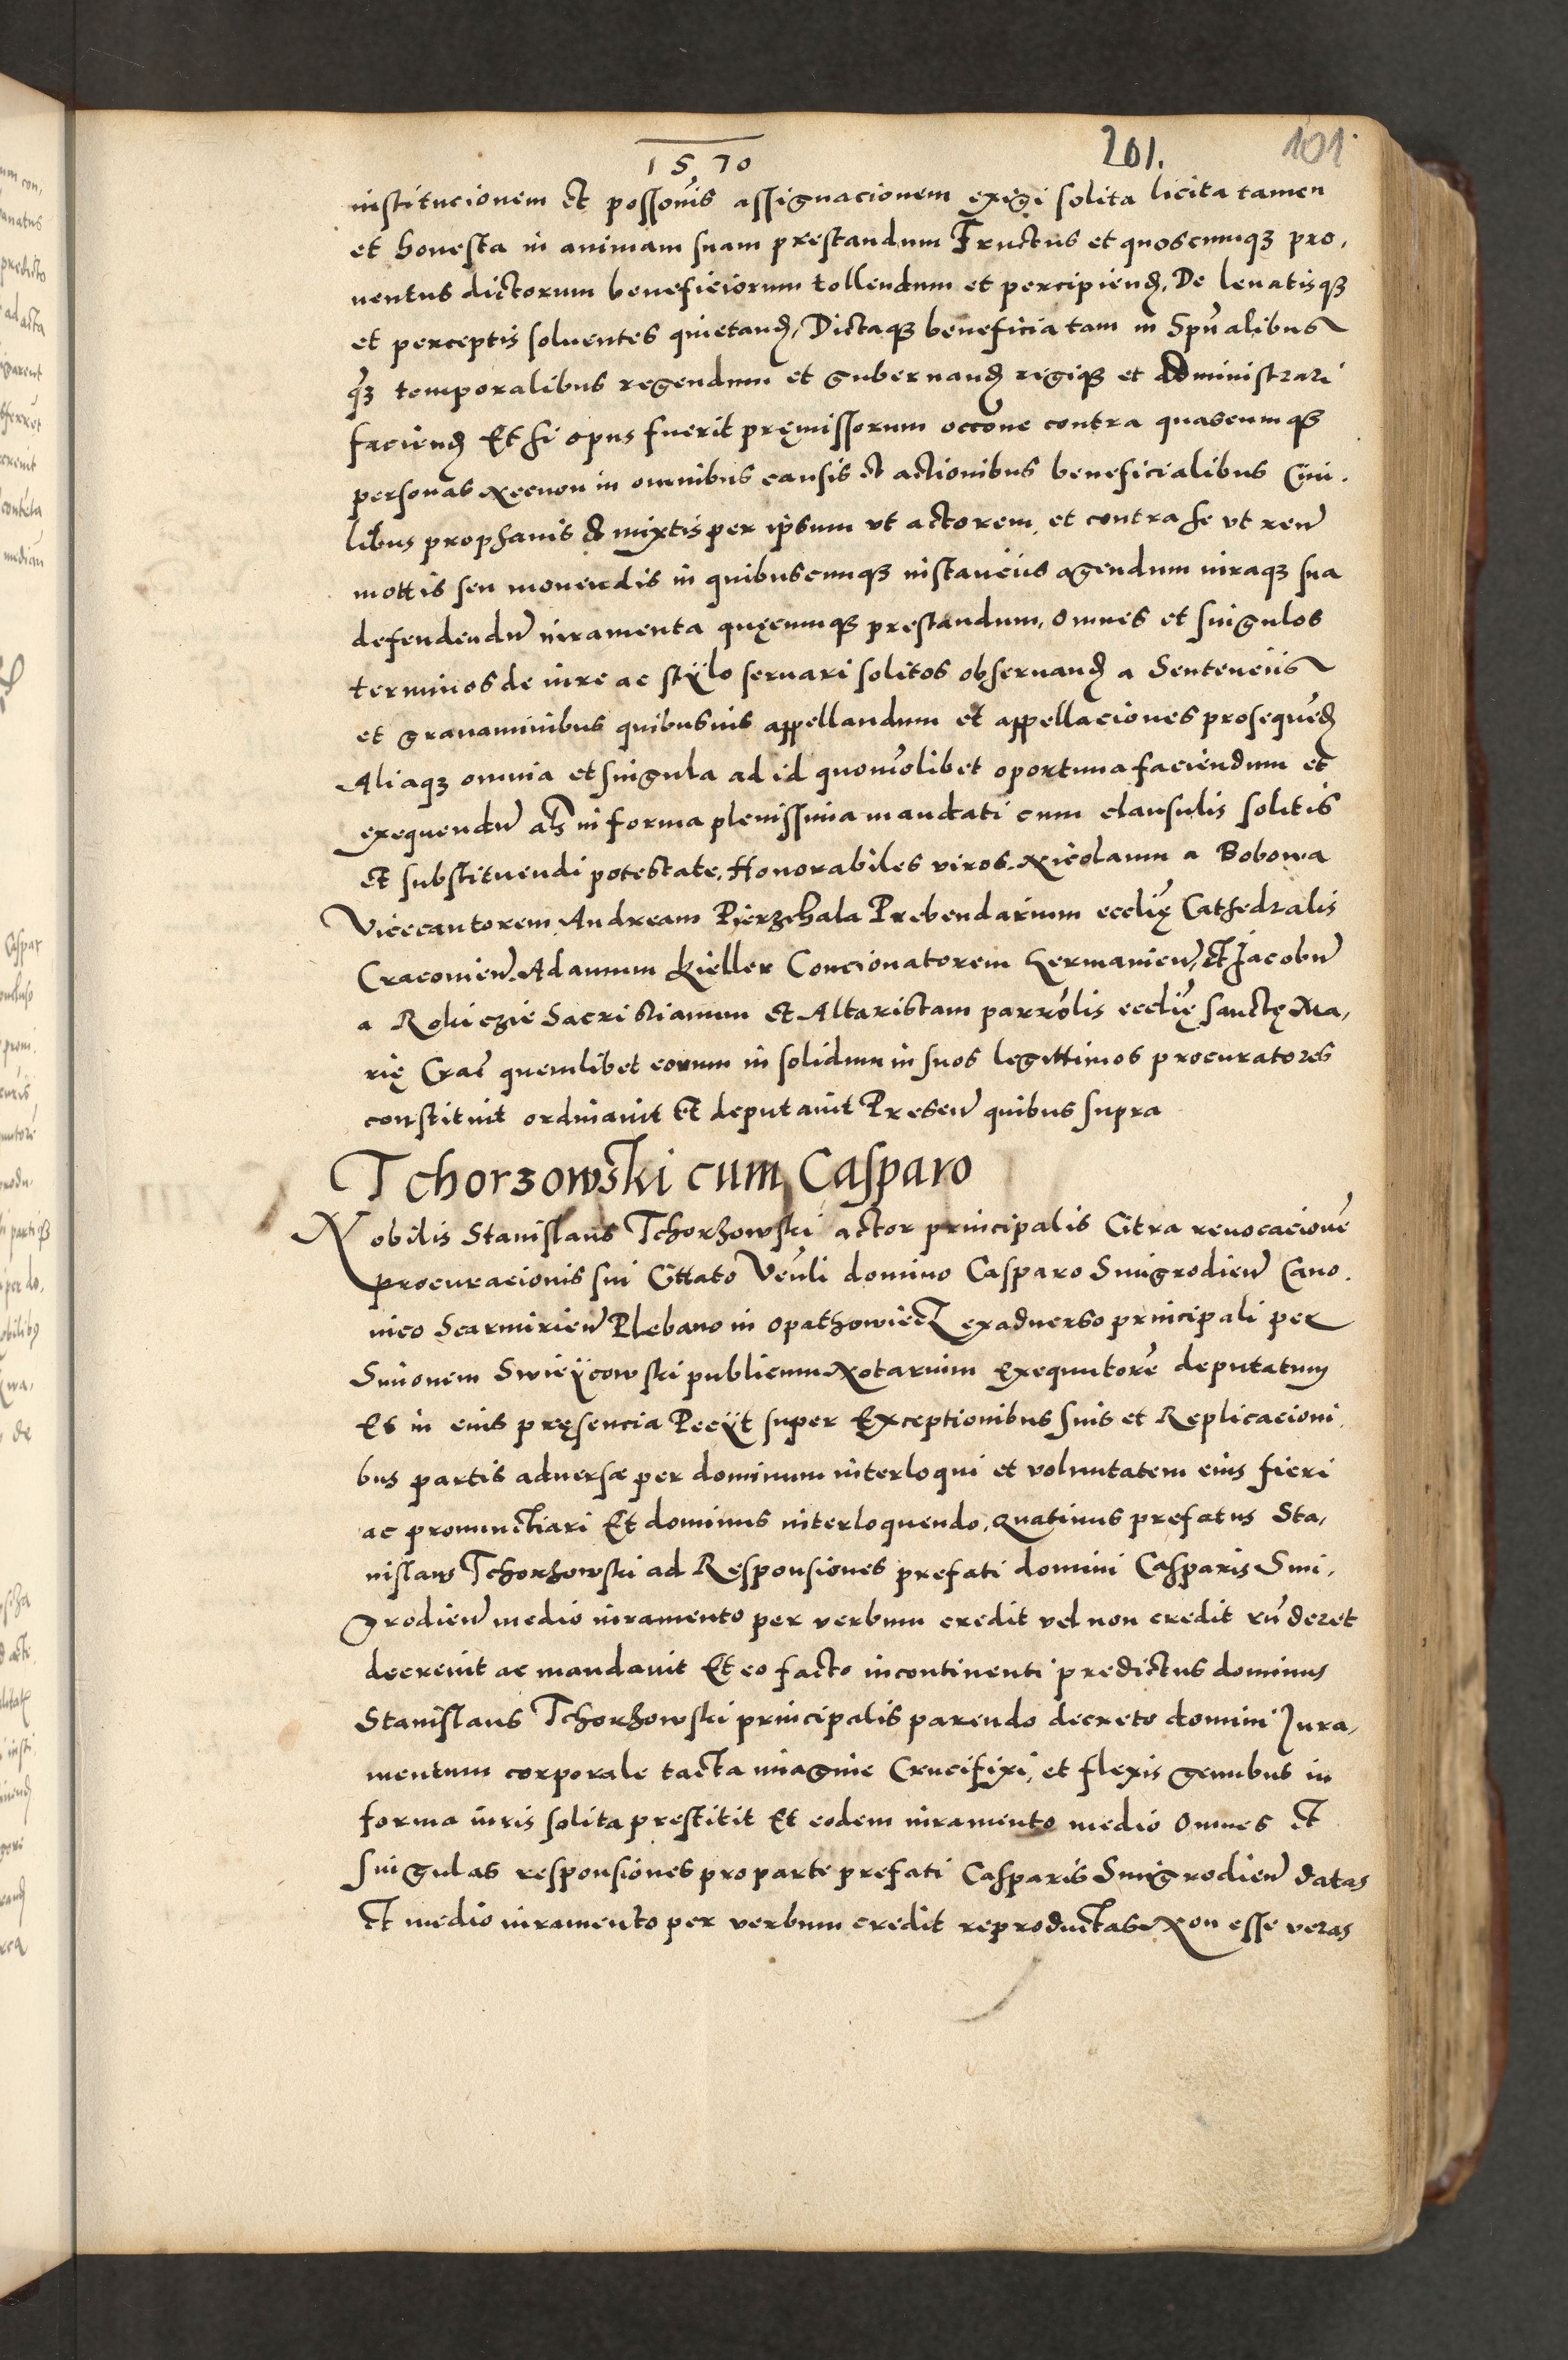 1570
201. 101
institucionem et possōnis assignacionem exigi solita licita tamen
et honesta in animam suam prestandum Fructus et quoscumqʒ pro,
uentus dictorum beneficiorum tollendum et percipiend, De leuatisqʒ
et perceptis soluentes quietand, Dictaqʒ beneficia tam in Spūalibus
q̃ʒ temporalibus regendum et gubernand regiqʒ et administrari
faciend Et si opus fuerit pręmissorum occōne contra quascumqʒ
personas Necnon in omnibus causis et actionibus beneficialibus Ciui.
libus prophanis et mixtis per ipsum vt actorem, et contra se vt reū
mottis seu mouendis in quibuscumqʒ instanciis agendum iuraqʒ sua
defendendū iuramenta quęcumqʒ prestandum, omnes et singulos
terminos de iure ac stÿlo seruari solitos obseruand a Sentenciis
et grauaminibus quibusuis appellandum et appellaciones prosequēd
Aliaqʒ omnia et singula ad id quomōlibet oportuna faciendum et
exequendū als in forma plenissima mandati cum clausulis solitis
et substituendi potestate, Honorabiles viros Nicolaum a Bobowa
Vicecantorem Andream Pierzchala Prebendarium ecclię Cathedralis
Cracouień. Adamum Kieller Concionatorem Germanień, et Jacobū
a Rokiczie Sacristianum et Altaristam parrōlis ecclię sanctę Ma,
rię Crac̄ quemlibet eorum in solidum in suos legittimos procuratores
constituit ordinauit et deputauit Presen̄ quibus supra
Tchorzowski cum Casparo
Nobilis Stanislaus Tchorzowski actor principalis Citra reuocacionē
procuracionis sui Cittato Venli domino Casparo Smigrodien̄ Cano.
nico Scarmirien̄ Plebano in Opathowiecz exaduerso principali per
Simonem Swieÿcowski publicum Notarium Exequutorē deputatum
Et in eius pręsencia Pecÿt super Exceptionibus suis et Replicacioni.
bus partis aduersæ per dominum interloqui et voluntatem eius fieri
ac pronunctiari Et dominus interloquendo, quatinus prefatus Sta,
nislaus Tchorzowski ad Responsiones prefati domini Casparis Smi,
grodien̄ medio iuramento per verbum credit vel non credit rn̄deret
decreuit ac mandauit Et eo facto incontinenti predictus dominus
Stanislaus Tchorzowski principalis parendo decreto domini Jura,
mentum corporale tacta imagine Crucifixi, et flexis genubus in
forma iuris solita prestitit Et eodem iuramento medio Omnes et
singulas responsiones pro parte prefati Casparis Smigrodien̄ datas
et medio iuramento per verbum credit reproductas Non esse veras